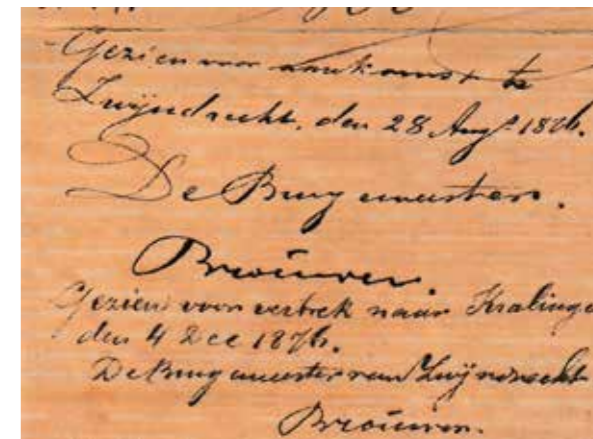 Gezien voor aankomst te
Zwijndrecht, den 28 Augs. 1876.
De Burgemeester.
Brouwer.
Gezien voor vertrek naar Kralinge
den 4 Dec 1876.
De Burgemeester van Zwijndrecht
Brouwer.